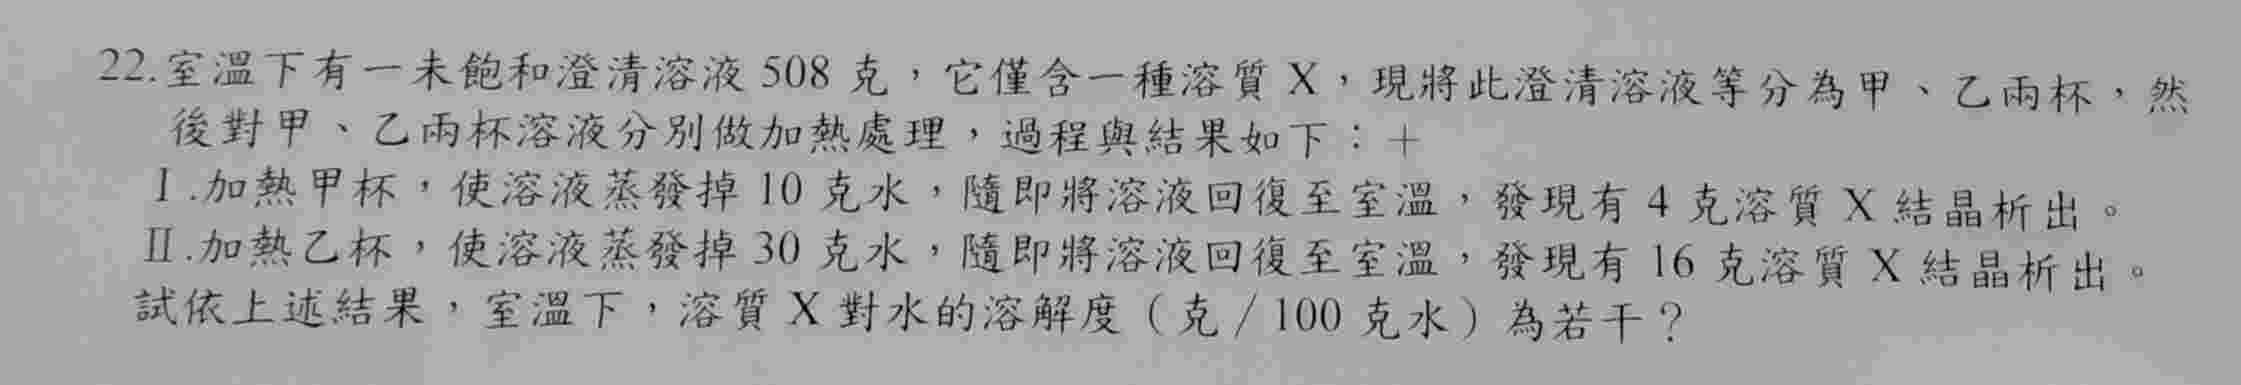 22.室溫下有一未飽和澄清溶液 508 克，它僅含一種溶質 X，現將此澄清溶液等分為甲、乙兩杯，然
後對甲、乙兩杯溶液分別做加熱處理，過程與結果如下：+
I.加熱甲杯，使溶液蒸發掉 10 克水，隨即將溶液回復至室溫，發現有 4 克溶質 X 結晶析出。
II.加熱乙杯，使溶液蒸發掉 30 克水，隨即將溶液回復至室溫，發現有 16 克溶質 X 結晶析出。
試依上述結果，室溫下，溶質 X 對水的溶解度（克/100 克水）為若干？